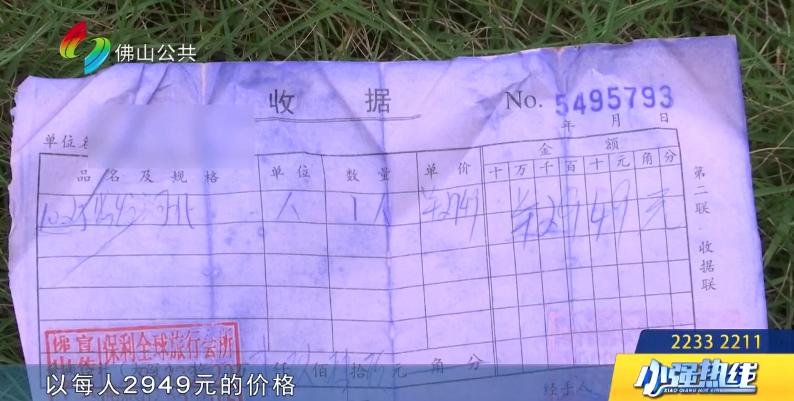 佛山公共
收 据 No. 5495793
年 月 日
单位
品名及规格 单位 数量 单价 金额
十 万 千 百 十 元 角 分
人 1人 ¥2949 ¥2949元
第二联 收据联
保利全球旅行会所
佰 拾 元 角 分
经手人
2233 2211
小强热线
XIAO QIANG HOT LINE
以每人2949元的价格